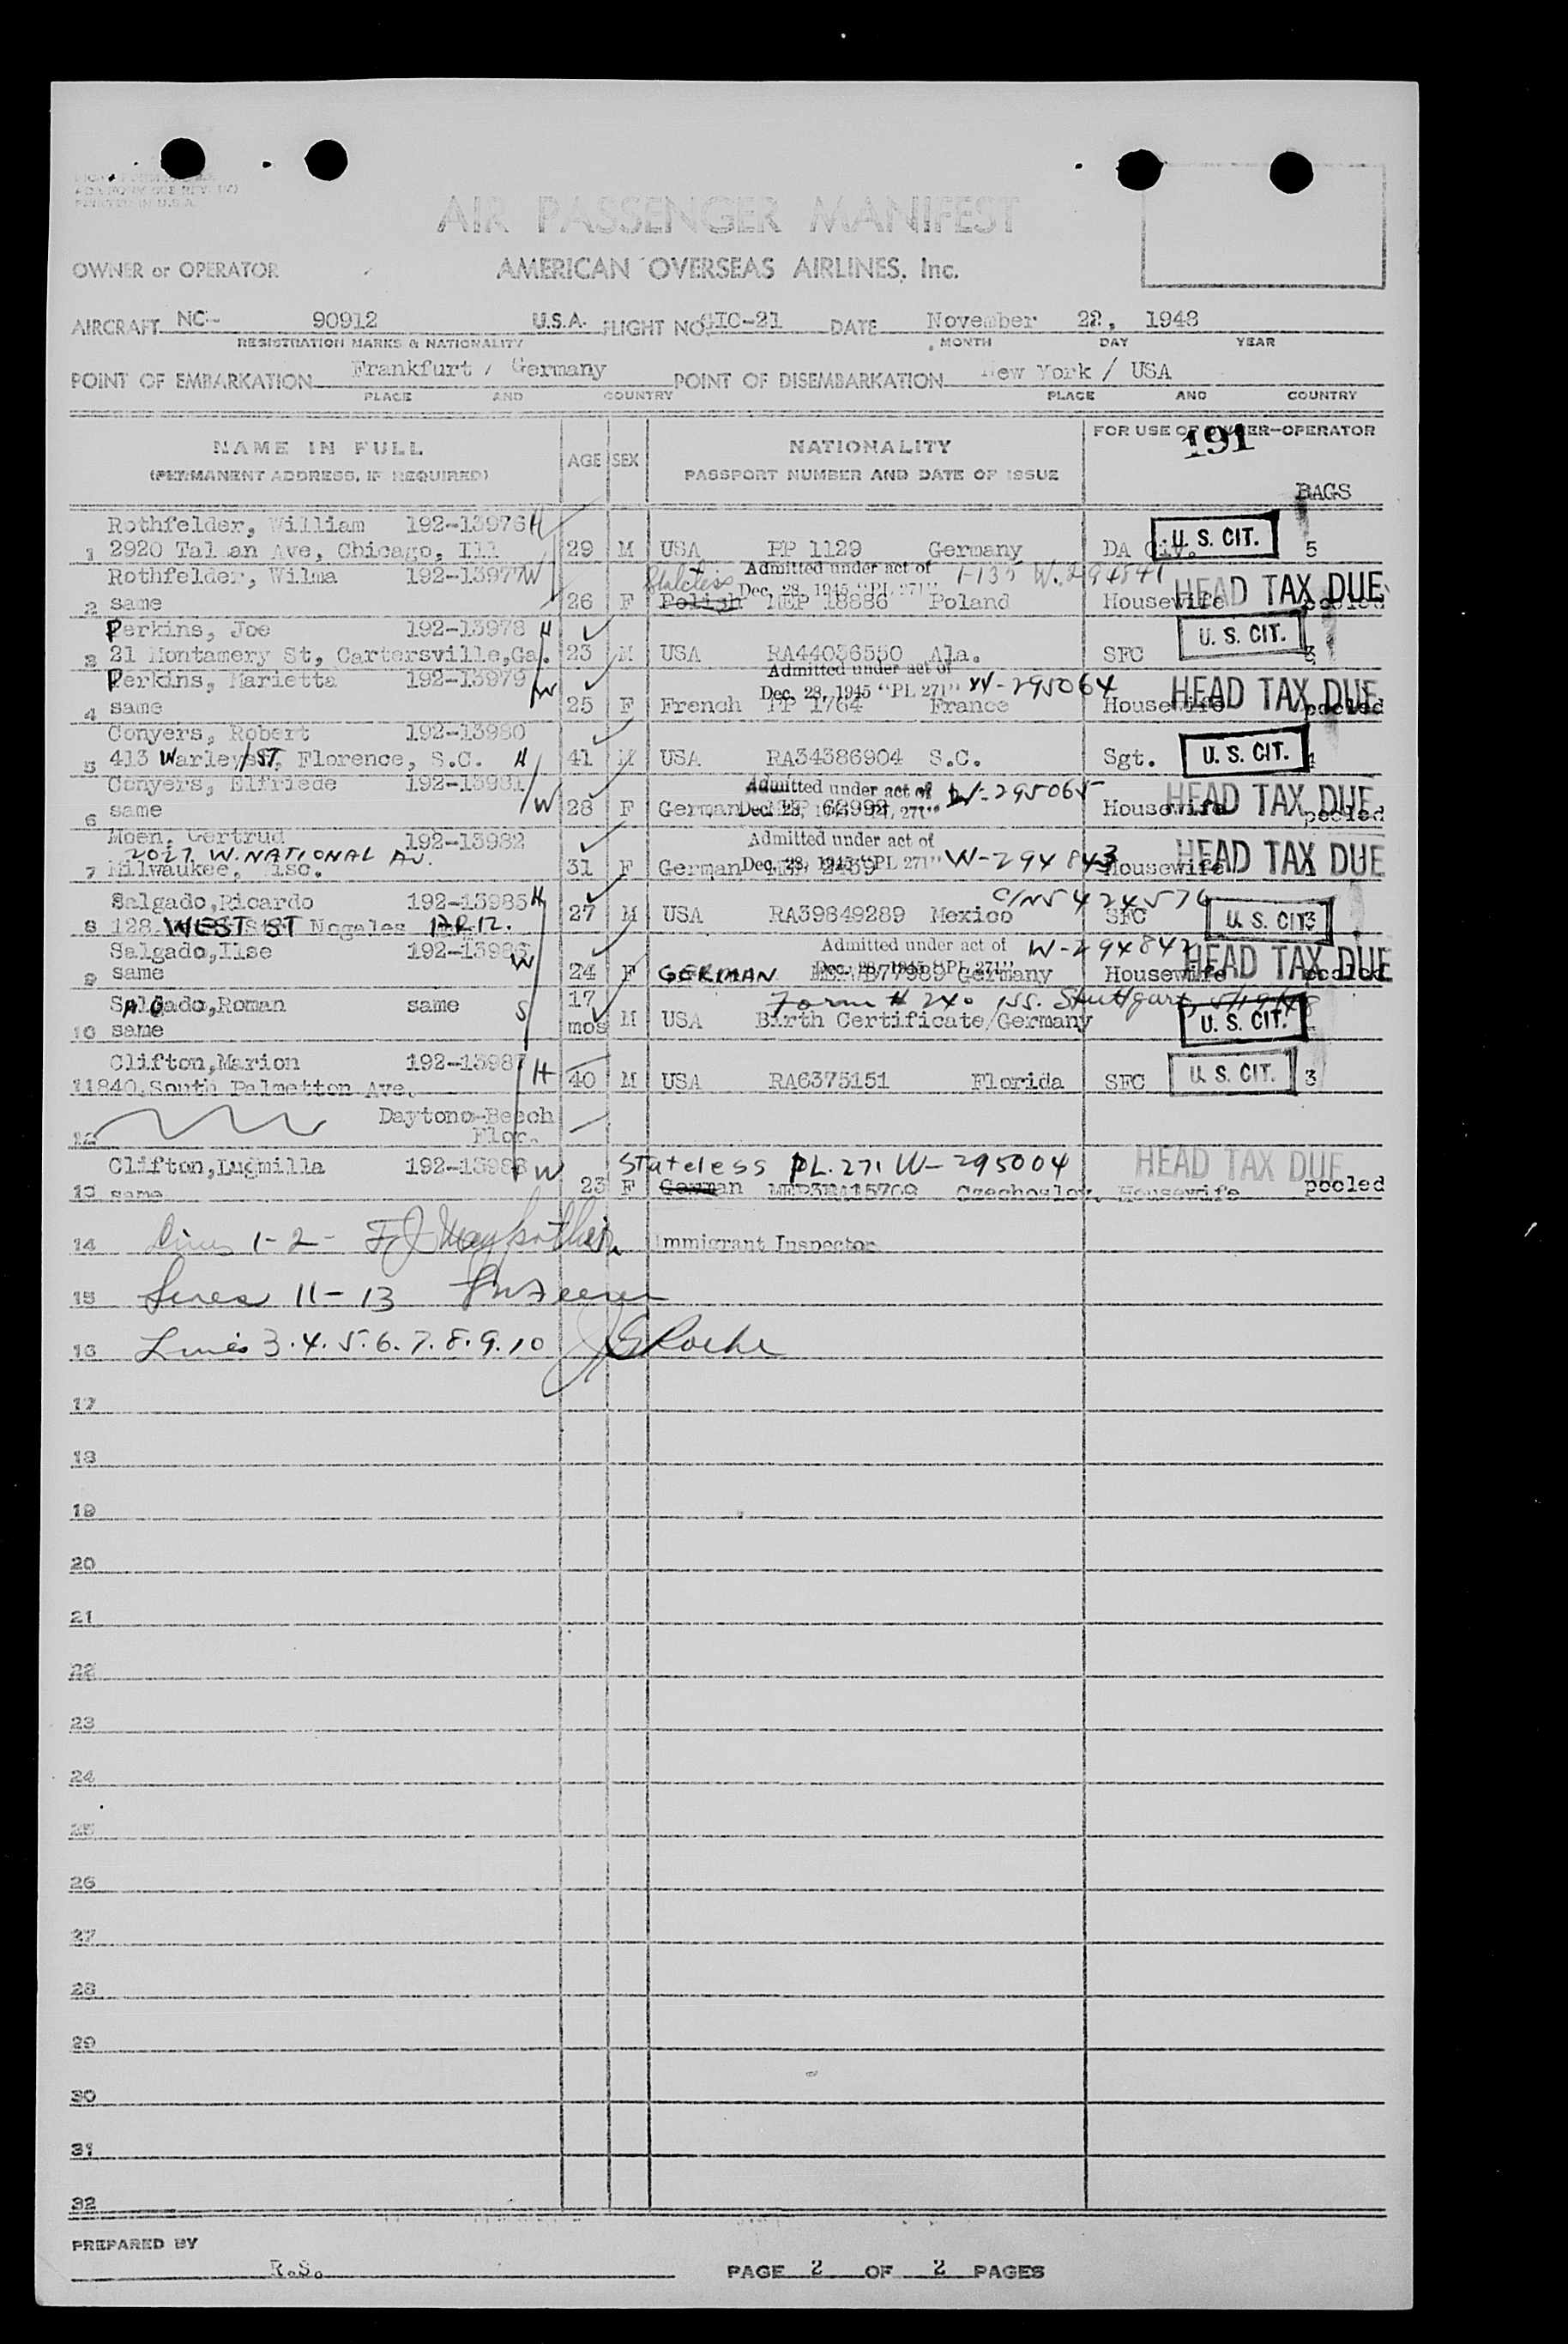 AIR PASSENGER MANIFEST
OWNER or OPERATOR AMERICAN OVERSEAS AIRLINES, Inc.
AIRCRAFT NC- 90912 U.S.A. FLIGHT NO. DATE November 22, 1948
REGISTRATION MARKS & NATIONALITY MONTH DAY YEAR
POINT OF EMBARKATION Frankfurt / Germany POINT OF DISEMBARKATION New York / USA
PLACE AND COUNTRY PLACE AND COUNTRY
NAME IN FULL AGE SEX NATIONALITY FOR USE OF OWNER-OPERATOR
191
(PERMANENT ADDRESS, IF REQUIRED) PASSPORT NUMBER AND DATE OF ISSUE
BAGS
Rothfelder, William 192-13976 H
1 2920 Tal an Ave, Chicago, Ill 29 M USA PP 1129 Germany DA Civ. U. S. CIT. 5
Rothfelder, Wilma 192-13977 W Stateless Admitted under act of Dec. 28, 1945 "PL 271" W-294841 HEAD TAX DUE
2 same 26 F Polish MEP 18886 Poland Housewife pooled
Perkins, Joe 192-13978 H U. S. CIT.
3 21 Montamery St, Cartersville, Ga. 23 M USA RA44036550 Ala. SFC 3
Perkins, Marietta 192-13979 W Admitted under act of Dec. 28, 1945 "PL 271" W-295064 HEAD TAX DUE
4 same 25 F French PP 1764 France Housewife pooled
Conyers, Robert 192-13980
5 413 Warley ST, Florence, S.C. H 41 M USA RA34386904 S.C. Sgt. U. S. CIT.
Conyers, Elfriede 192-13981 Admitted under act of Dec. 28, "PL 271" W-295065 HEAD TAX DUE
6 same W 28 F German Housewife pooled
Moen, Gertrud 192-13982 Admitted under act of
2027 W. NATIONAL AV. Dec. 28, 1945 "PL 271" W-294843 HEAD TAX DUE
7 Milwaukee, Wisc. 31 F German MEP 2439 Housewife
Salgado, Ricardo 192-13985 H C/N 5424576
8 128 WEST ST Nogales ARIZ. 27 M USA RA39849289 Mexico SFC U. S. CIT. 3
Salgado, Ilse 192-13986 W Admitted under act of Dec. 28, 1945 "PL 271" W-294842 HEAD TAX DUE
9 same 24 F GERMAN Germany Housewife pooled
Salgado, Roman same S 17 Form # 240 iss. Stuttgart
10 same mos M USA Birth Certificate/Germany U. S. CIT.
Clifton, Marion 192-13987 H
11 840, South Palmetton Ave. 40 M USA RA6375151 Florida SFC U. S. CIT. 3
Daytono-Beech
12 Flor.
Clifton, Ludmilla 192-13988 W Stateless PL. 271 W-295004 HEAD TAX DUE
13 same 23 F German MEP3EA15709 Czechoslov. Housewife pooled
14 Lines 1-2- Immigrant Inspector
15 Lines 11-13
16 Lines 3.4.5.6.7.8.9.10 J G Roche
17
18
19
20
21
22
23
24
25
26
27
28
29
30
31
32
PREPARED BY
R.S. PAGE 2 OF 2 PAGES